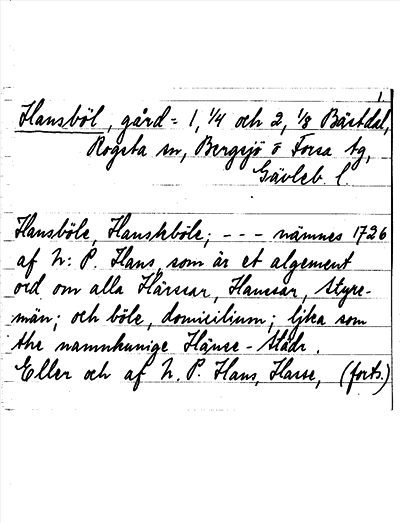 1.
Hansböl, gård = 1, 1/4 och 2, 1/8 Bästdal,
Rogsta sn, Bergsjö o Forsa tg,
Gävleb. l.
Hansböle, Hanskböle; - - - nämnes 1726
af N: P. Hans, som är et algement
ord om alla Härssar, Hanssar, Styre-
män; och böle, domicilium; lijka som
the namnkunige Hänse-Städr.
Eller och af N. P. Hans, Hasse, (forts.)